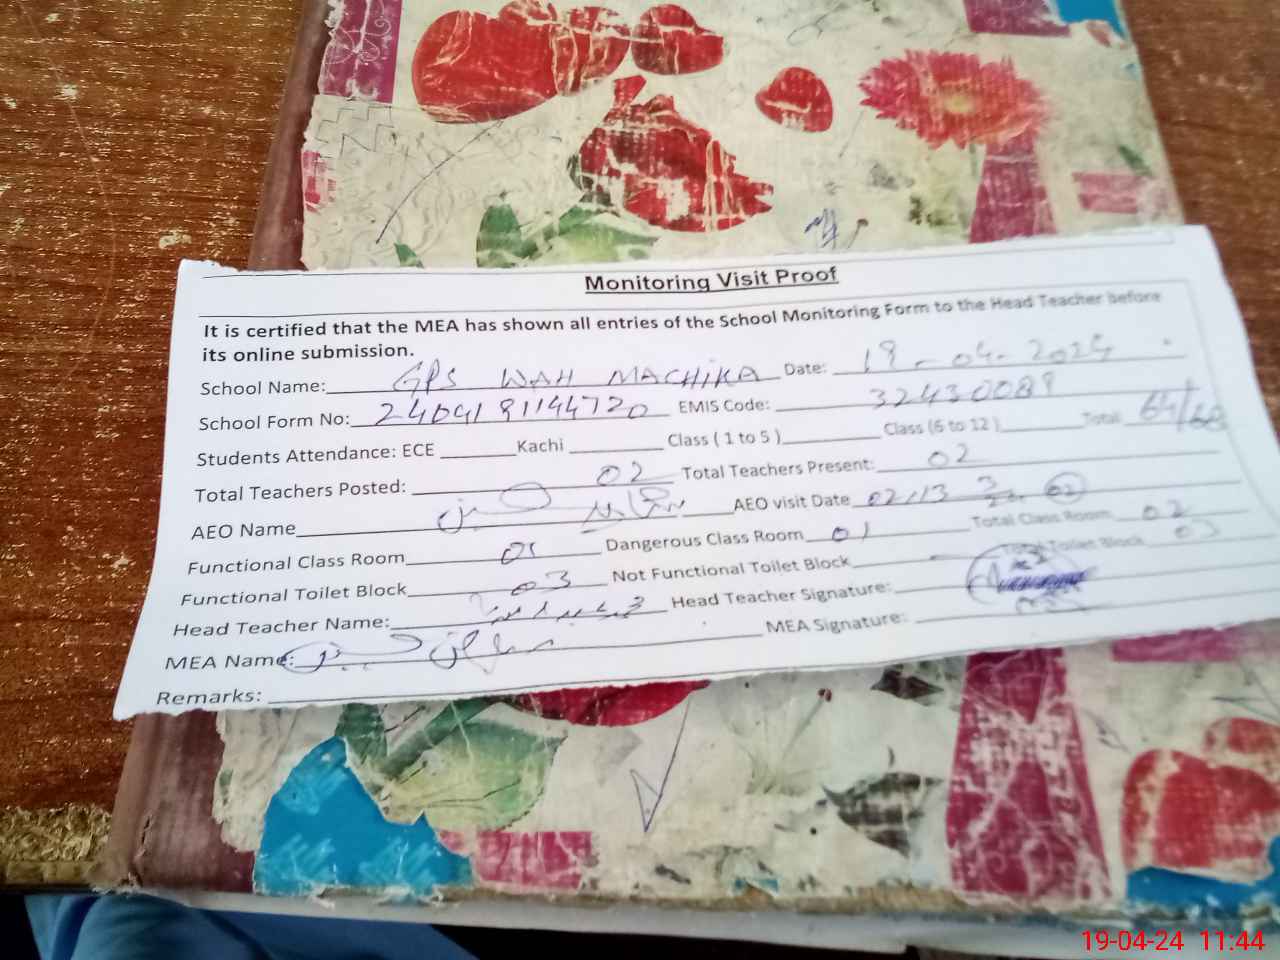 Monitoring Visit Proof
It is certified that the MEA has shown all entries of the School Monitoring Form to the Head Teacher before
its online submission.
School Name: GPS WAH MACHIKA Date: 19-04-2024
School Form No: 2404191144720 EMIS Code: 32430089
Students Attendance: ECE Kachi Class ( 1 to 5 ) Class (6 to 12 ) Total 64/
Total Teachers Posted: 02 Total Teachers Present: 02
AEO Name AEO visit Date
Functional Class Room 01 Dangerous Class Room 01 Total Class Room 02
Functional Toilet Block 03 Not Functional Toilet Block Total Toilet Block 03
Head Teacher Name: Head Teacher Signature:
MEA Name: MEA Signature:
Remarks:
19-04-24 11:44